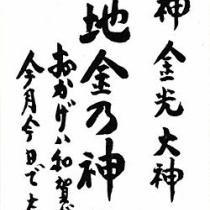 神 金光大神
地金乃神
おかげハ和賀
今月今日で